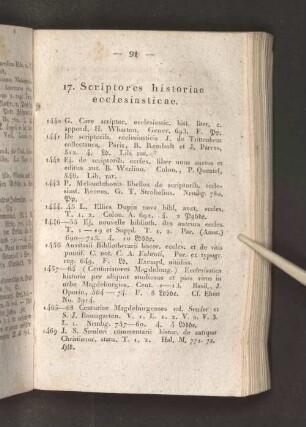 — 91 —
17. Scriptores historiae
ecclesiasticae.
1440 G. Cave scriptor. ecclesiastic. hist. liter. c.
append. H. Wharton. Genev. 693. F. Pp.
1441 De scriptorib. ecclesiasticis J. de Trittenhem
collectanea. Paris, B. Rembolt et J. Parvus,
512. 4. Ld. Lib. rar.
1442 Ej. de scriptorib. eccles. liber unus auctus et
editus aut. B. Werlino. Colon., P. Quentel,
546. Lib. rar.
1443 P. Melanchthonis libellus de scriptorib. eccle-
siast. Recens. G. T. Strobelius. Nrnbg. 780.
Pp.
1444. 45 L. Ellies Dupin nova bibl. auct. eccles.
T. 1. 2. Colon. A. 692. 4. 2 Pgbde.
1446—55 Ej. nouvelle biblioth. des auteurs eccles.
T. 1 — 19 et Suppl. T. 1. 2. Par. (Amst.)
690—715. 4. 10 Ldbde.
1456 Anastasii Bibliothecarii histor. eccles. et de vitis
pontif. C. not. C. A. Fabroti. Par. ex typogr.
reg. 649. F. Ld. Exempl. nitidiss.
1457—64 (Centuriatores Magdeburg.) Ecclesiastica
historia per aliquot studiosos et pios viros in
urbe Magdeburgica. Cent. 1—13. Basil., J.
Oporin. 564—74. F. 8 Ldbde. Cf. Ebert
No. 3914.
1465—68 Centuriae Magdeburgenses ed. Semler et
S. J. Baumgarten. V. 1. L. 1. 2. V. 2. V. 3.
L. 1. Nrnbg. 757—60. 4. 5 Ldbde.
1469 J. S. Semleri commentarii histor. de antiquo
Christianor. statu. T. 1. 2. Hal. M. 771. 72.
Hfd.